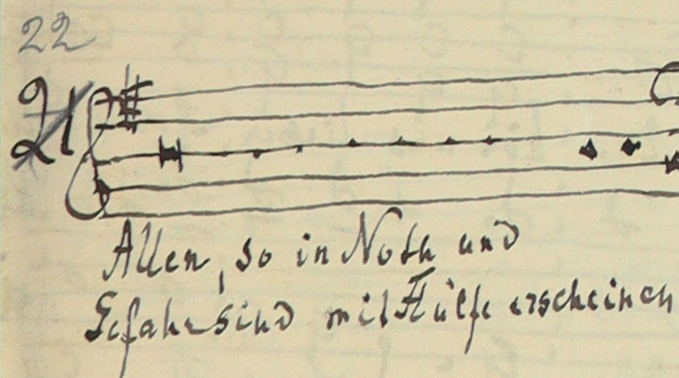 22
21
Allen, so in Noth und
Gefahr sind mit Hülfe erscheinen